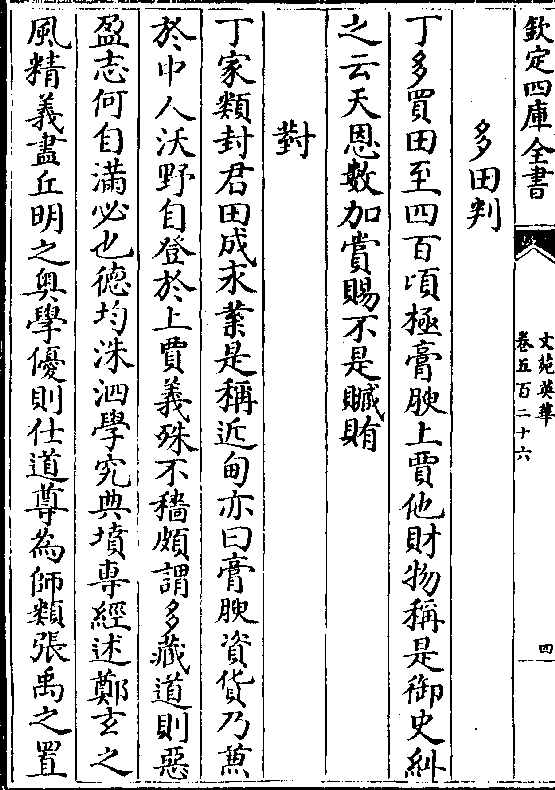 欽定四庫全書
文苑英華
卷五百二十六
四
多田判
丁多買田至四百頃極膏腴上賈他財物稱是御史糾
之云天恩數加賞賜不是贓賄
對
丁家類封君田成求業是稱近甸亦曰膏腴資貨乃蒸
於中人沃野自登於上賈義殊不穡頗謂多藏道則惡
盈志何自滿必也德均洙泗學究典墳専經述鄭玄之
風精義盡丘明之奥學優則仕道尊為師類張禹之置